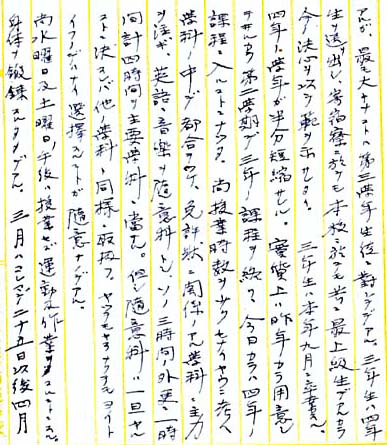 アルガ、最モ大キナノハ第三学年生徒ニ対シテデアル。三年生ハ四年
生ヲ送リ出シ、寄宿寮ニ於テモ本校ニ於テモ若キ最上級生デアルカラ
今ノ決心ヲ以テ範ヲ示セヨ。三年生ハ本年九月ニ卒業スル。
四年ノ学年ガ半分短縮サレル。実質上ハ昨年カラ用意
ヲサセラレ第二学期デ三年ノ課程ヲ終ヘ今日カラハ四年ノ
課程ニ入ルコトニナツタ。尚授業時数ヲ少クセナイヤウニ考ヘ
学科ノ中デ都合ツケ、免許状ニ関係ノアル学科ニ主力
ヲ注ギ英語、音楽ヲ随意科トシ、ソノ三時間ノ外更ニ一時
間計四時間ヲ主要学科ニ当テル。但シ随意科ハ一旦ヤル
ト決メレバ他ノ学科ト同様ニ取扱フ。ヤツテモヤラナクテモヨイト
イフノデハナイ選択スルコトガ随意ナノデアル。
尚水曜日及土曜日午後ハ授業セズ運動及作業ヲスルトコロハ
身体ノ鍛錬スルタメデアル。三月ハ二十五日以後四月